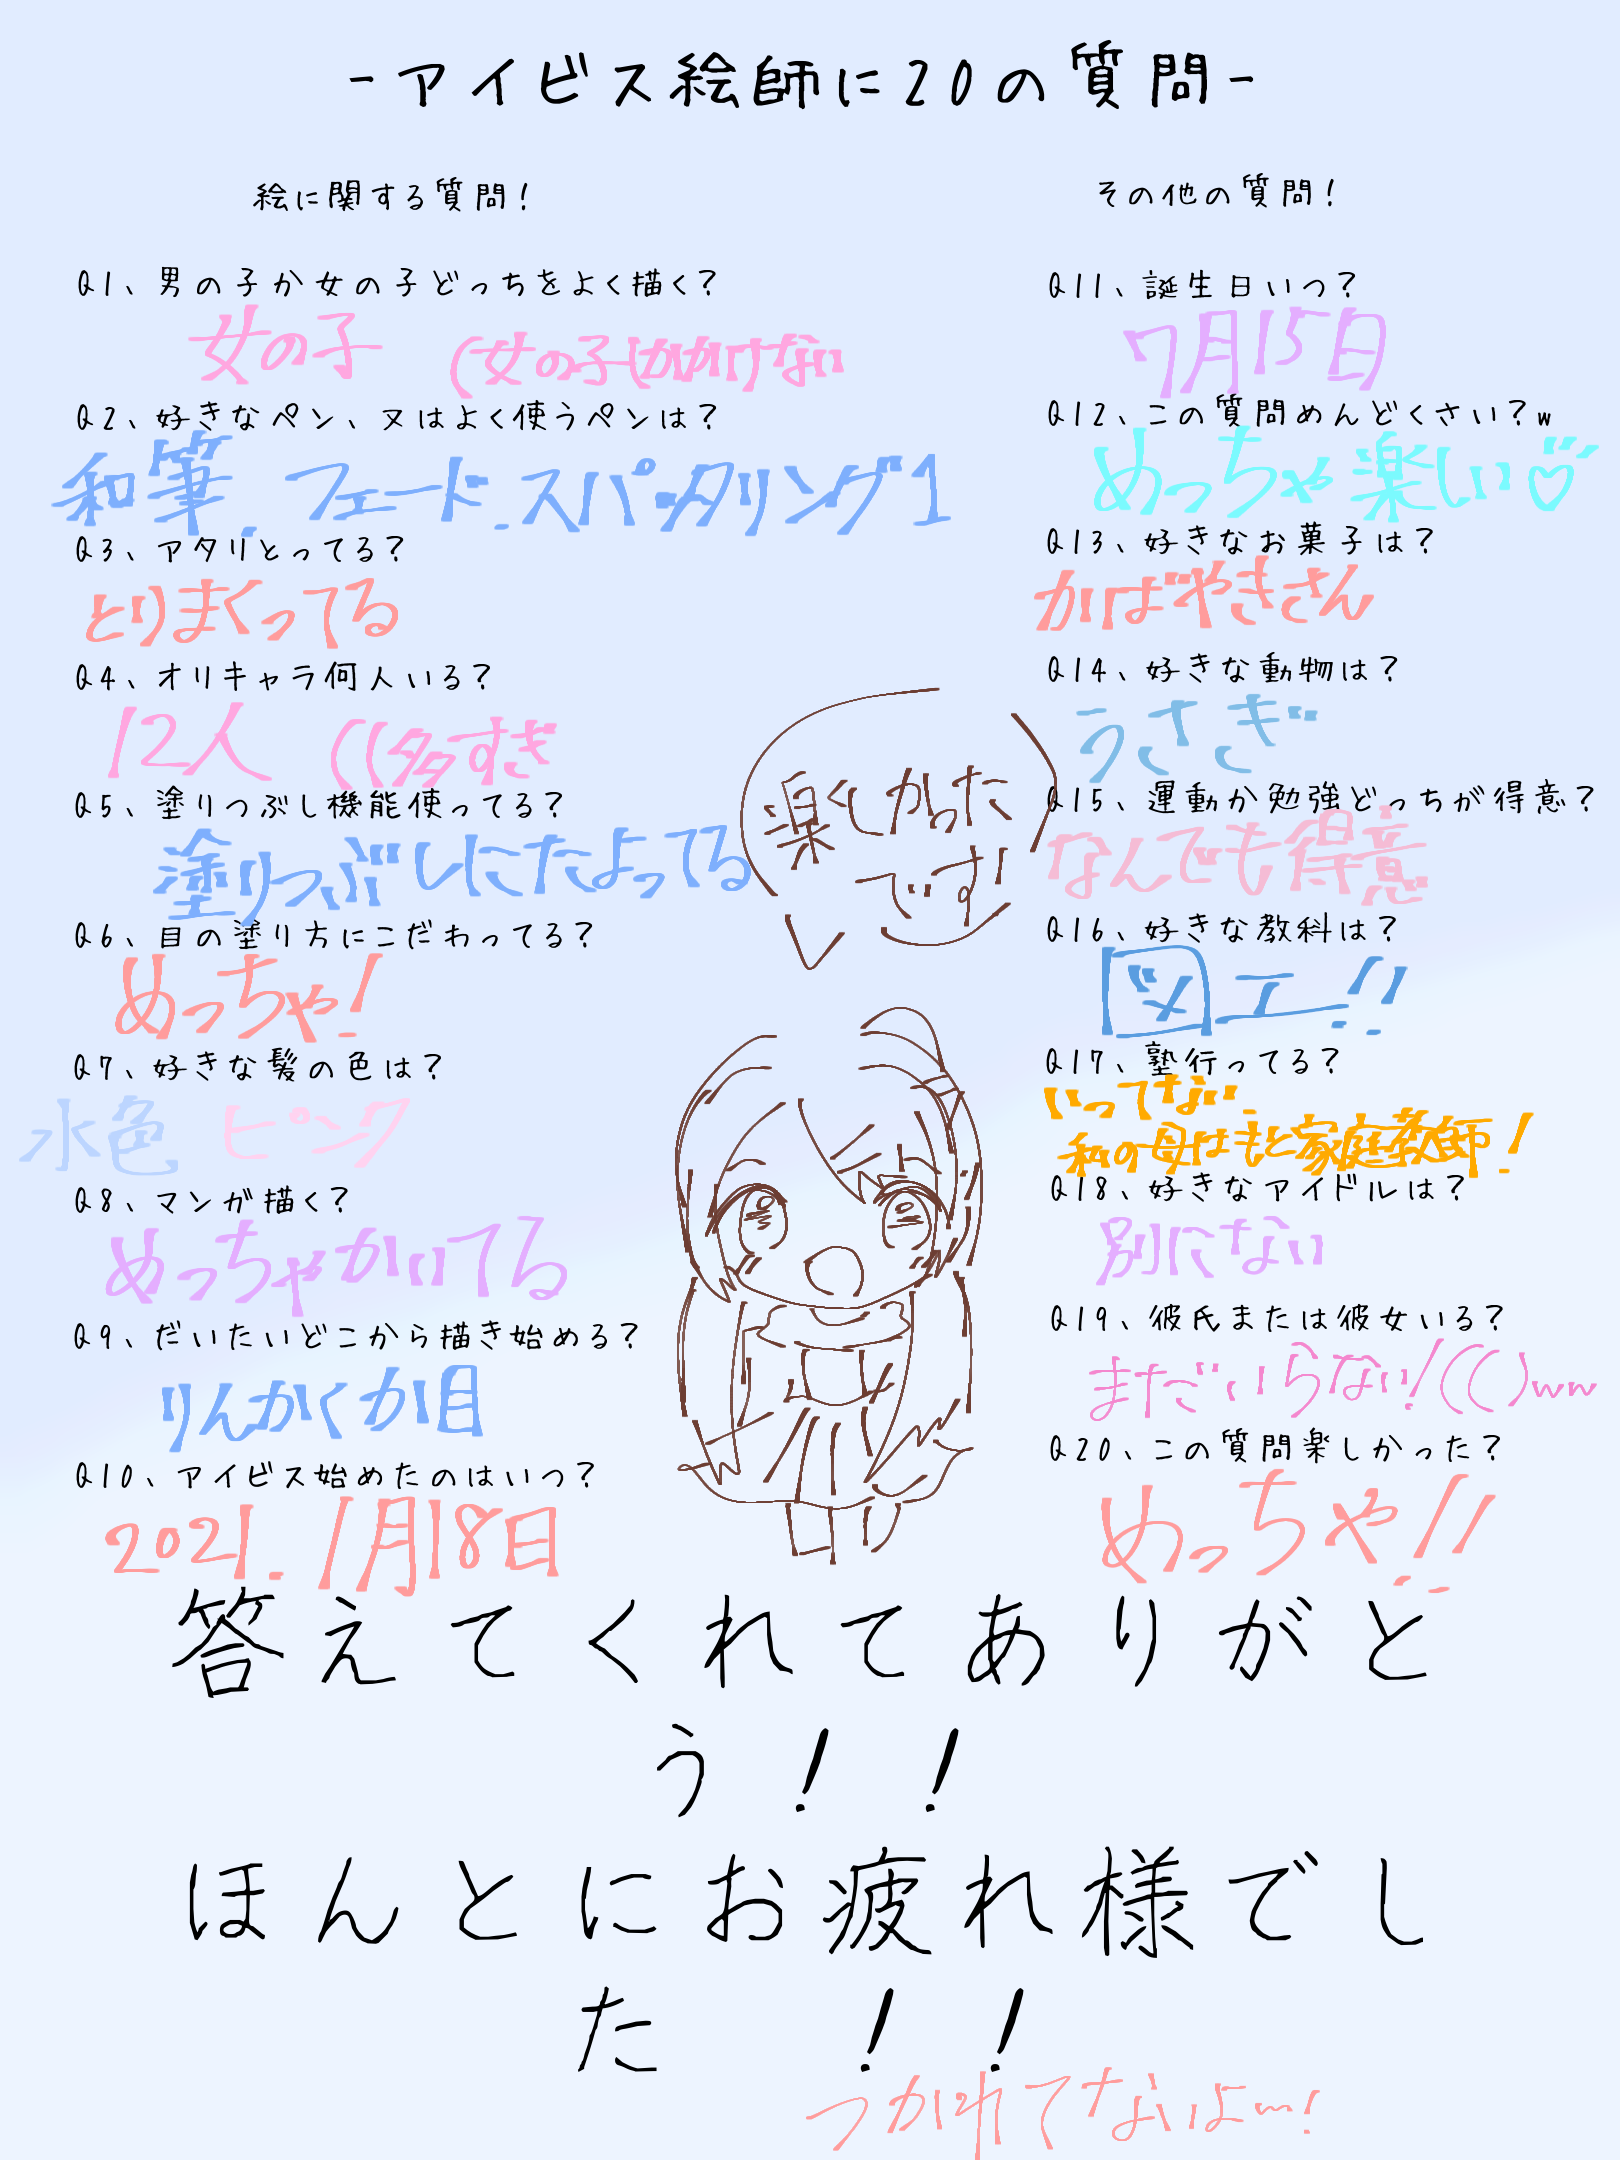 -アイビス絵師に20の質問-
絵に関する質問！
Q1、男の子か女の子どっちをよく描く？
女の子 (女の子しかかけない
Q2、好きなペン、又はよく使うペンは？
和筆.フェード.スパッタリング1
Q3、アタリとってる？
とりまくってる
Q4、オリキャラ何人いる？
12人 ((多すぎ
Q5、塗りつぶし機能使ってる？
塗りつぶしにたよってる
Q6、目の塗り方にこだわってる？
めっちゃ！
Q7、好きな髪の色は？
水色 ピンク
Q8、マンガ描く？
めっちゃかいてる
Q9、だいたいどこから描き始める？
りんかくか目
Q10、アイビス始めたのはいつ？
2021.1月18日
楽しかった
です！
その他の質問！
Q11、誕生日いつ？
7月15日
Q12、この質問めんどくさい？w
めっちゃ楽しい♡
Q13、好きなお菓子は？
かばやきさん
Q14、好きな動物は？
うさぎ
Q15、運動か勉強どっちが得意？
なんでも得意
Q16、好きな教科は？
図工！！
Q17、塾行ってる？
いってない.
私の母はもと家庭教師！
Q18、好きなアイドルは？
別にない
Q19、彼氏または彼女いる？
まだいらない！(()ww
Q20、この質問楽しかった？
めっちゃ！！
答えてくれてありがと
う！！
ほんとにお疲れ様でし
た ！！
つかれてないよ〜！